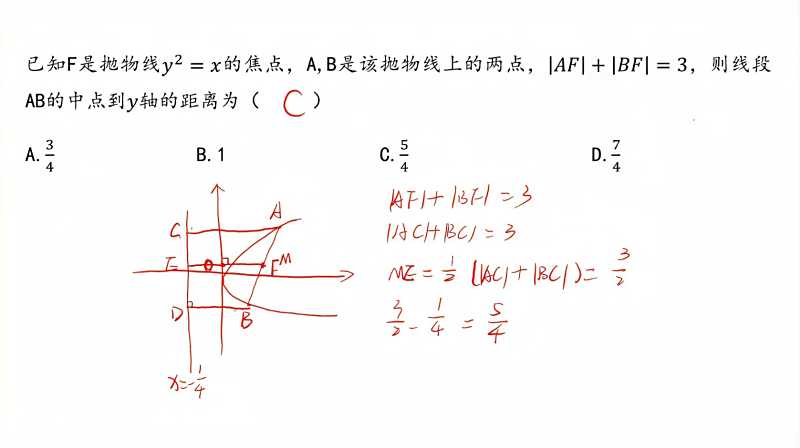 已知F是抛物线y² = x的焦点，A,B是该抛物线上的两点，|AF| + |BF| = 3，则线段
AB的中点到y轴的距离为（ C ）
A. 3/4 B. 1 C. 5/4 D. 7/4
|AF| + |BF| = 3
|AC| + |BC| = 3
ME = 1/2 (|AC| + |BC|) = 3/2
3/2 - 1/4 = 5/4
A
C
E
F
M
D
B
x = -1/4